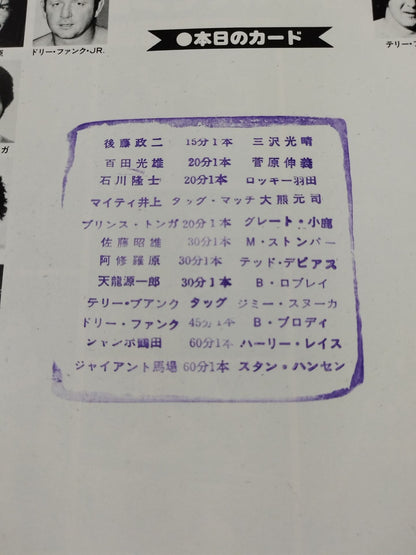 ドリー・ファンク・JR.
●本日のカード
テリー・フ
ガ
後藤政二 15分1本 三沢光晴
百田光雄 20分1本 菅原伸義
石川隆士 20分1本 ロッキー羽田
マイティ井上 タッグ・マッチ 大熊元司
プリンス・トンガ 20分1本 グレート・小鹿
佐藤昭雄 30分1本 M・ストンパー
阿修羅原 30分1本 テッド・デビアス
天龍源一郎 30分1本 B・ロブレイ
テリー・ファンク タッグ ジミー・スヌーカ
ドリー・ファンク 45分1本 B・ブロディ
ジャンボ鶴田 60分1本 ハーリー・レイス
ジャイアント馬場 60分1本 スタン・ハンセン